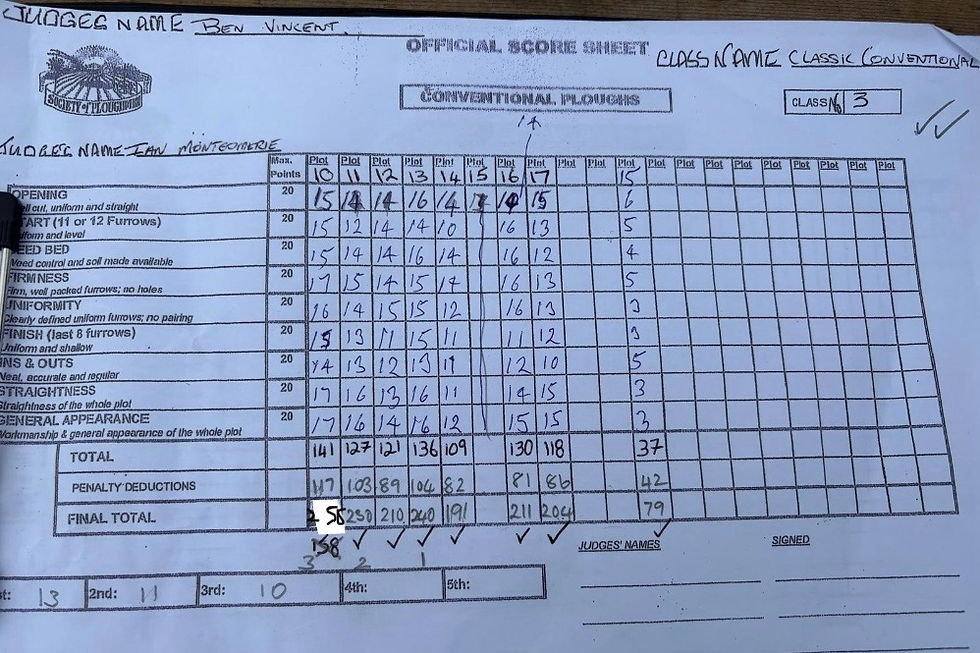 JUDGES NAME BEN VINCENT.
OFFICIAL SCORE SHEET
CLASS NAME CLASSIC CONVENTIONAL
SOCIETY of PLOUGHMEN
CONVENTIONAL PLOUGHS
CLASS No 3
14
JUDGES NAME IAN MONTGOMERIE
Max. Points Plot Plot Plot Plot Plot Plot Plot Plot Plot Plot Plot Plot Plot Plot Plot Plot Plot Plot Plot Plot
10 11 12 13 14 15 16 17 15
OPENING 20 15 14 14 16 14 15 6
cut, uniform and straight
START (11 or 12 Furrows) 20 15 12 14 14 10 16 13 5
uniform and level
SEED BED 20 15 14 14 16 14 16 12 4
Weed control and soil made available
FIRMNESS 20 17 15 14 15 14 16 13 5
Firm, well packed furrows; no holes
UNIFORMITY 20 16 14 15 15 12 16 13 3
Clearly defined uniform furrows; no pairing
FINISH (last 8 furrows) 20 15 13 11 15 11 11 12 3
Uniform and shallow
INS & OUTS 20 14 13 12 13 11 12 10 5
Neat, accurate and regular
STRAIGHTNESS 20 17 16 13 16 11 14 15 3
Straightness of the whole plot
GENERAL APPEARANCE 20 17 16 14 16 12 15 15 3
Workmanship & general appearance of the whole plot
TOTAL 141 127 121 136 109 130 118 37
PENALTY DEDUCTIONS 117 103 89 104 82 81 86 42
FINAL TOTAL 258 230 210 240 191 211 204 79
158
3 2 1
JUDGES' NAMES SIGNED
1st: 13 2nd: 11 3rd: 10 4th: 5th: